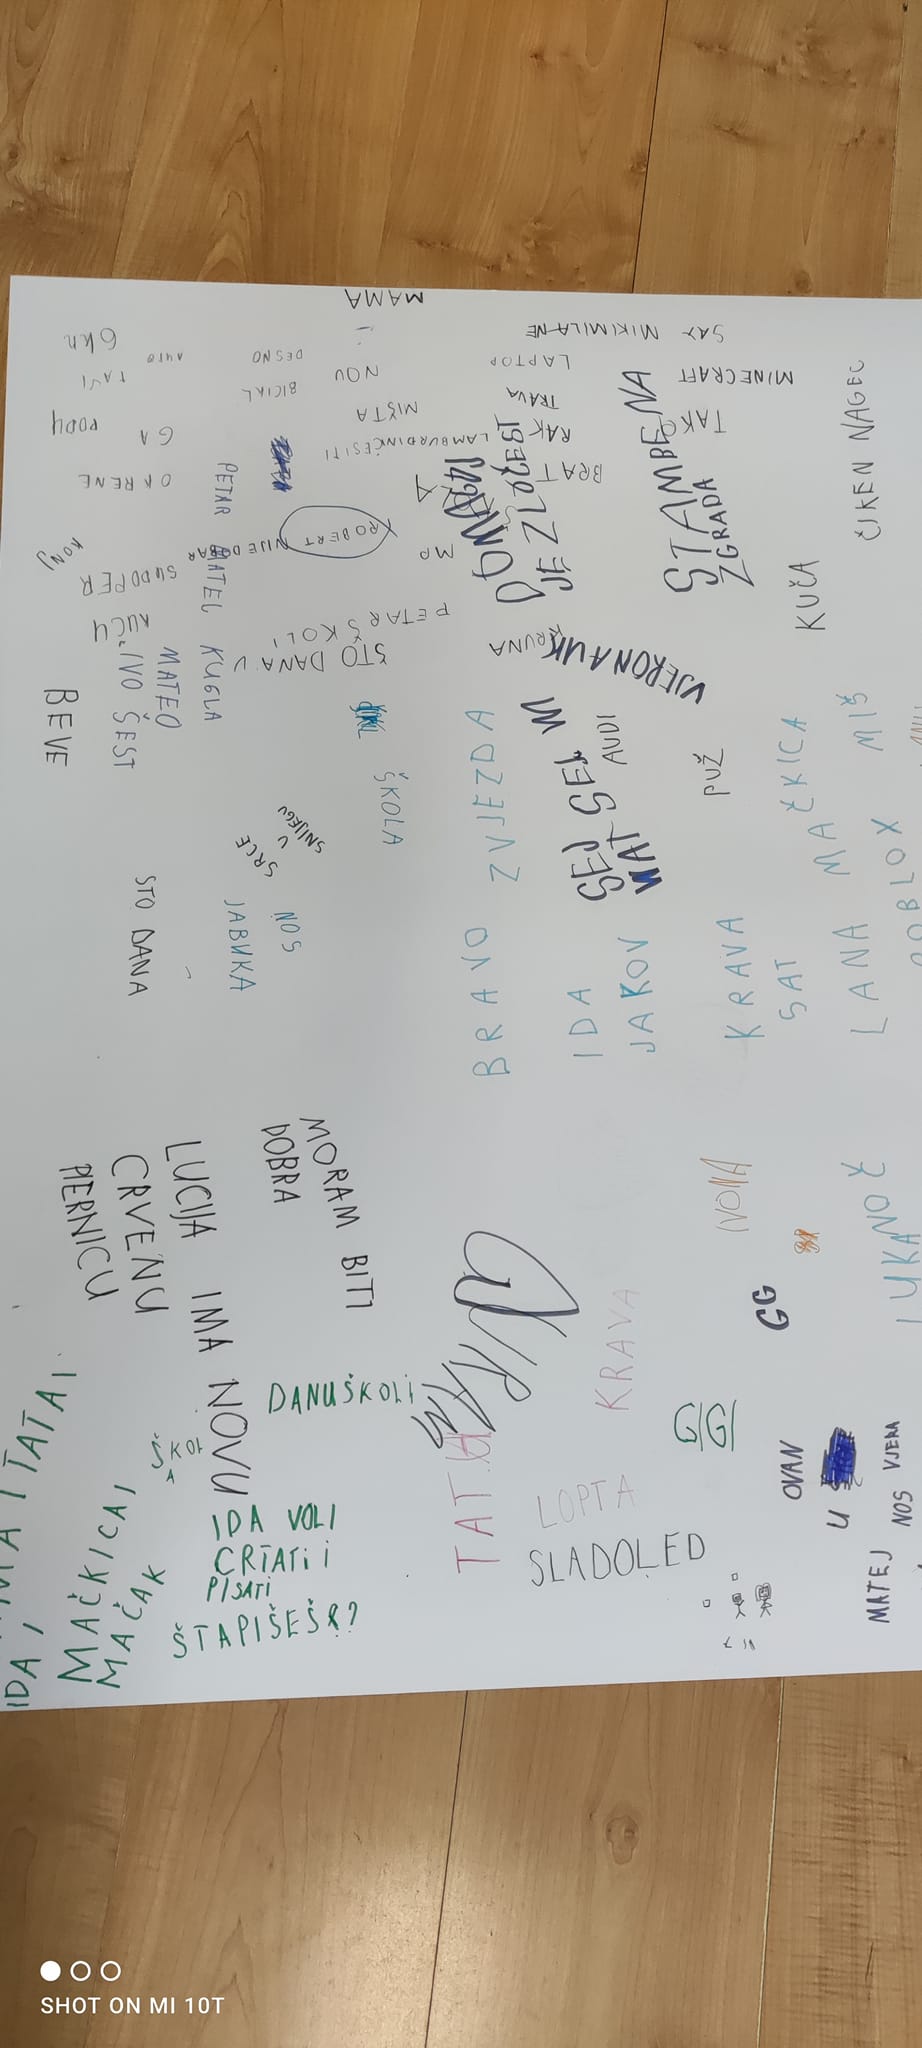 MAMA
6 kn
AUTO
DESNO
SAT MIKIMILANE
LAPTOP
TAXI
BICIKL
NOU
MINECRAFT
TRAVA
MIŠTA
TAKO
RAK
LAMBURDINČESITI
BRAT
STAMBENA
ZGRADA
ČIKEN NAGEC
JE ZLOČEST
GA
OKRENE
PETAR
ROBERT NIJE DOBAR
MO
KONJ
SUDOPER
MATEJ
KUĆU
KUĆA
PETAR ŠKOLI
ŠTO DANA U
KRUNA
VJERONAUK
IVO ŠEST
MATEO
KUGLA
BEVE
ŠKOLA
BRAVO ZVJEZDA
SEJ SEJ
WAT
AUDI
PUŽ
MAČKICA
MIŠ
SRCE
U
SNIJEGU
STO DANA
JABUKA
NOS
IDA
JAKOV
KRAVA
SAT
LANA
ROBLOX
LUCIJA IMA NOVU
CRVENU
PERNICU
MORAM BITI
DOBRA
IVONA
GG
KRAVA
DANUŠKOLI
GIGI
TATA
LOPTA
SLADOLED
ŠKOL
A
I TATA,
IDA,
MAČKICA,
MAČAK
IDA VOLI
CRTATI I
PISATI
ŠTAPIŠEŠ?
OVAN
U
MATEJ
NOS VJERA
SHOT ON MI 10T